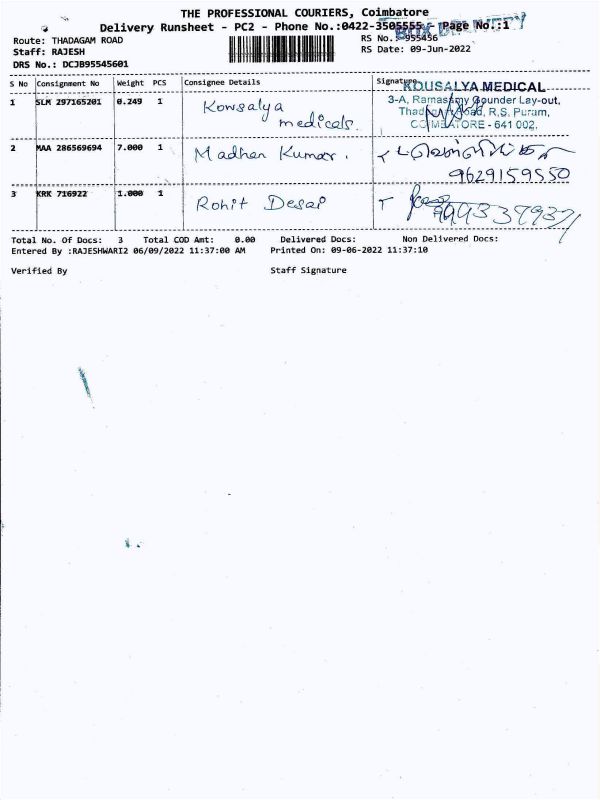 THE PROFESSIONAL COURIERS, Coimbatore
Delivery Runsheet - PC2 - Phone No.:0422-3505555 Page No.:1
BOX DELIVERY
Route: THADAGAM ROAD
RS No.: 955456
Staff: RAJESH
RS Date: 09-Jun-2022
DRS No.: DCJB95545601
S No Consignment No Weight PCS Consignee Details Signature
KOUSALYA MEDICAL
3-A, Ramasamy Gounder Lay-out,
R.S. Puram,
COIMBATORE - 641 002.
1 SLM 297165201 0.249 1 Kowsalya
medicals.
2 MAA 286569694 7.000 1 Madhan Kumar.
9629159550
3 KRK 716922 1.000 1 Rohit Desai
Total No. Of Docs: 3 Total COD Amt: 0.00 Delivered Docs: Non Delivered Docs:
Entered By :RAJESHWARI2 06/09/2022 11:37:00 AM Printed On: 09-06-2022 11:37:10
Verified By Staff Signature